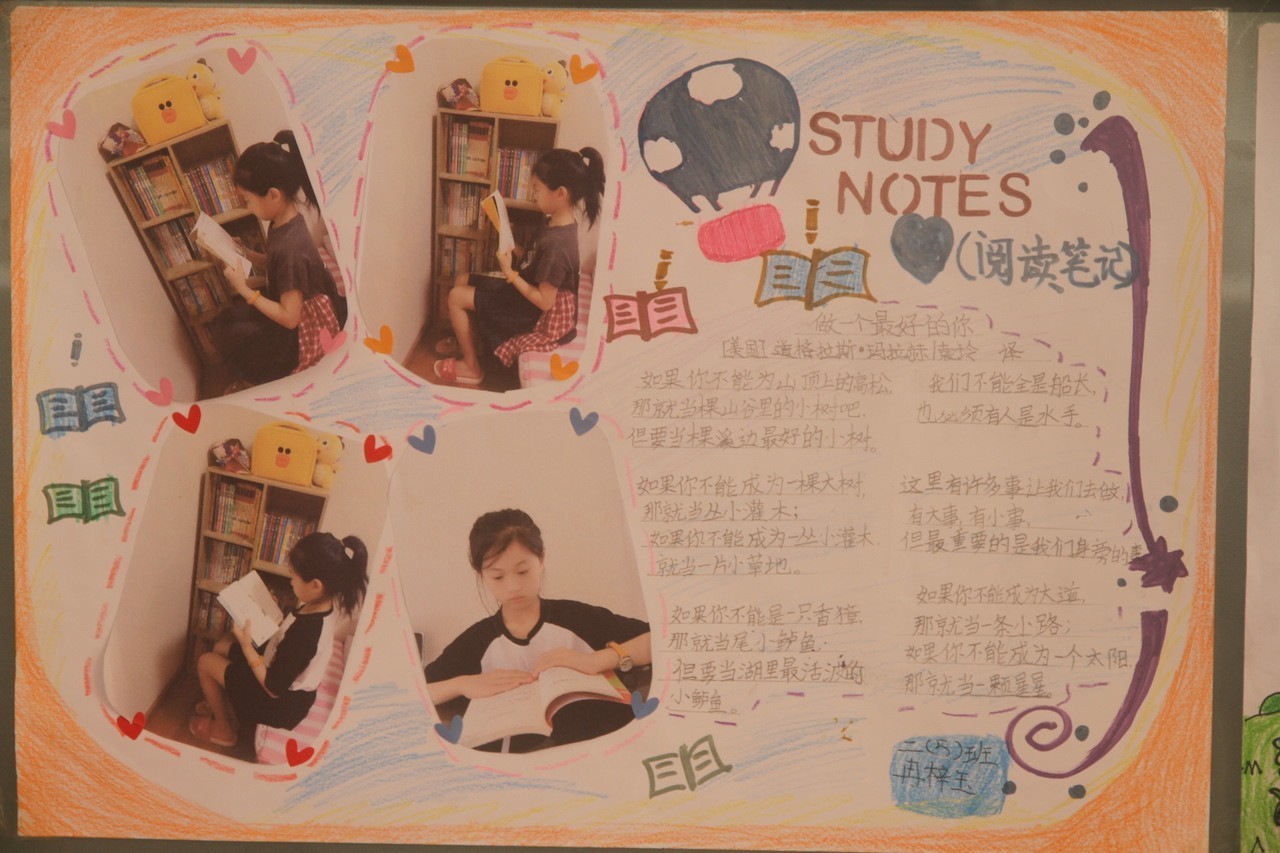 STUDY
NOTES
(阅读笔记)
做一个最好的你
[美国]道格拉斯·玛拉赫
译
如果你不能为山顶上的高松,
那就当棵山谷里的小树吧,
但要当棵溪边最好的小树。
如果你不能成为一棵大树,
那就当丛小灌木;
如果你不能成为一丛小灌木,
就当一片小草地。
如果你不能是一只香獐,
那就当尾小鲈鱼;
但要当湖里最活泼的
小鲈鱼。
我们不能全是船长,
也必须有人是水手。
这里有许多事让我们去做,
有大事,有小事,
但最重要的是我们身旁的事
如果你不能成为大道,
那就当一条小路;
如果你不能成为一个太阳,
那就当一颗星星
二(6)班
冉梓玉